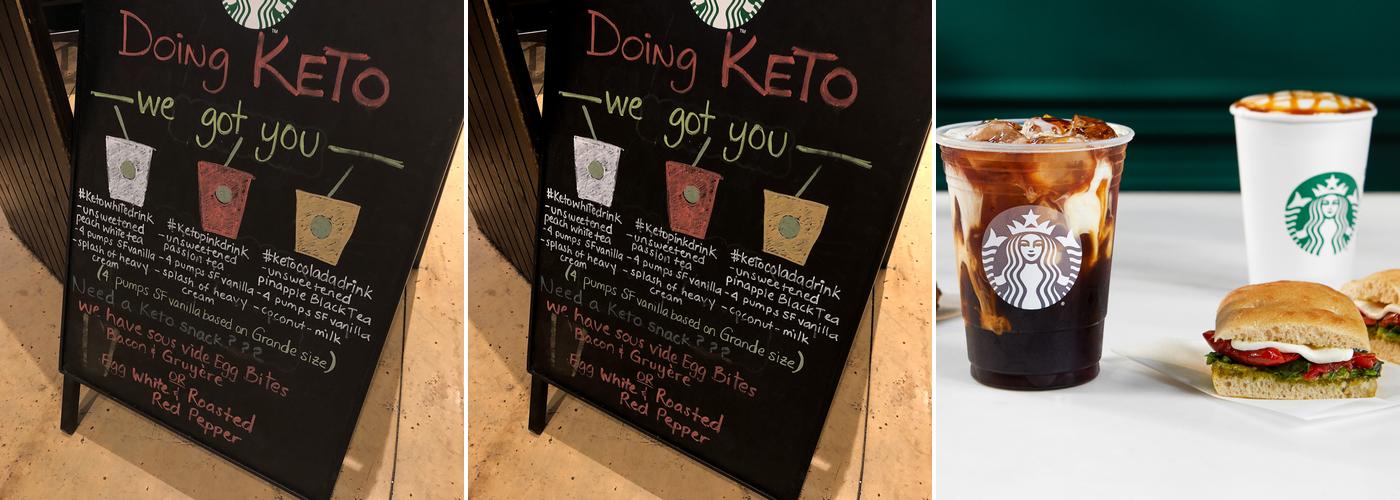 Doing KETO
we got you
#Ketowhitedrink
-unsweetened
peach white tea
-4 pumps SF vanilla
-splash of heavy
cream
#Ketopinkdrink
-unsweetened
passion tea
-4 pumps SF vanilla
-splash of heavy
cream
#ketocoladadrink
-unsweetened
pinapple Black Tea
-4 pumps SF vanilla
-coconut-milk
(4 pumps SF vanilla based on Grande size)
Need a Keto snack???
we have sous vide Egg Bites
Bacon & Gruyère
OR
Egg White & Roasted
Red Pepper
TM
Doing KETO
we got you
#Ketowhitedrink
-unsweetened
peach white tea
-4 pumps SF vanilla
-splash of heavy
cream
#Ketopinkdrink
-unsweetened
passion tea
-4 pumps SF vanilla
-splash of heavy
cream
#ketocoladadrink
-unsweetened
pinapple Black Tea
-4 pumps SF vanilla
-coconut-milk
(4 pumps SF vanilla based on Grande size)
Need a Keto snack???
we have sous vide Egg Bites
Bacon & Gruyère
OR
Egg White & Roasted
Red Pepper
TM